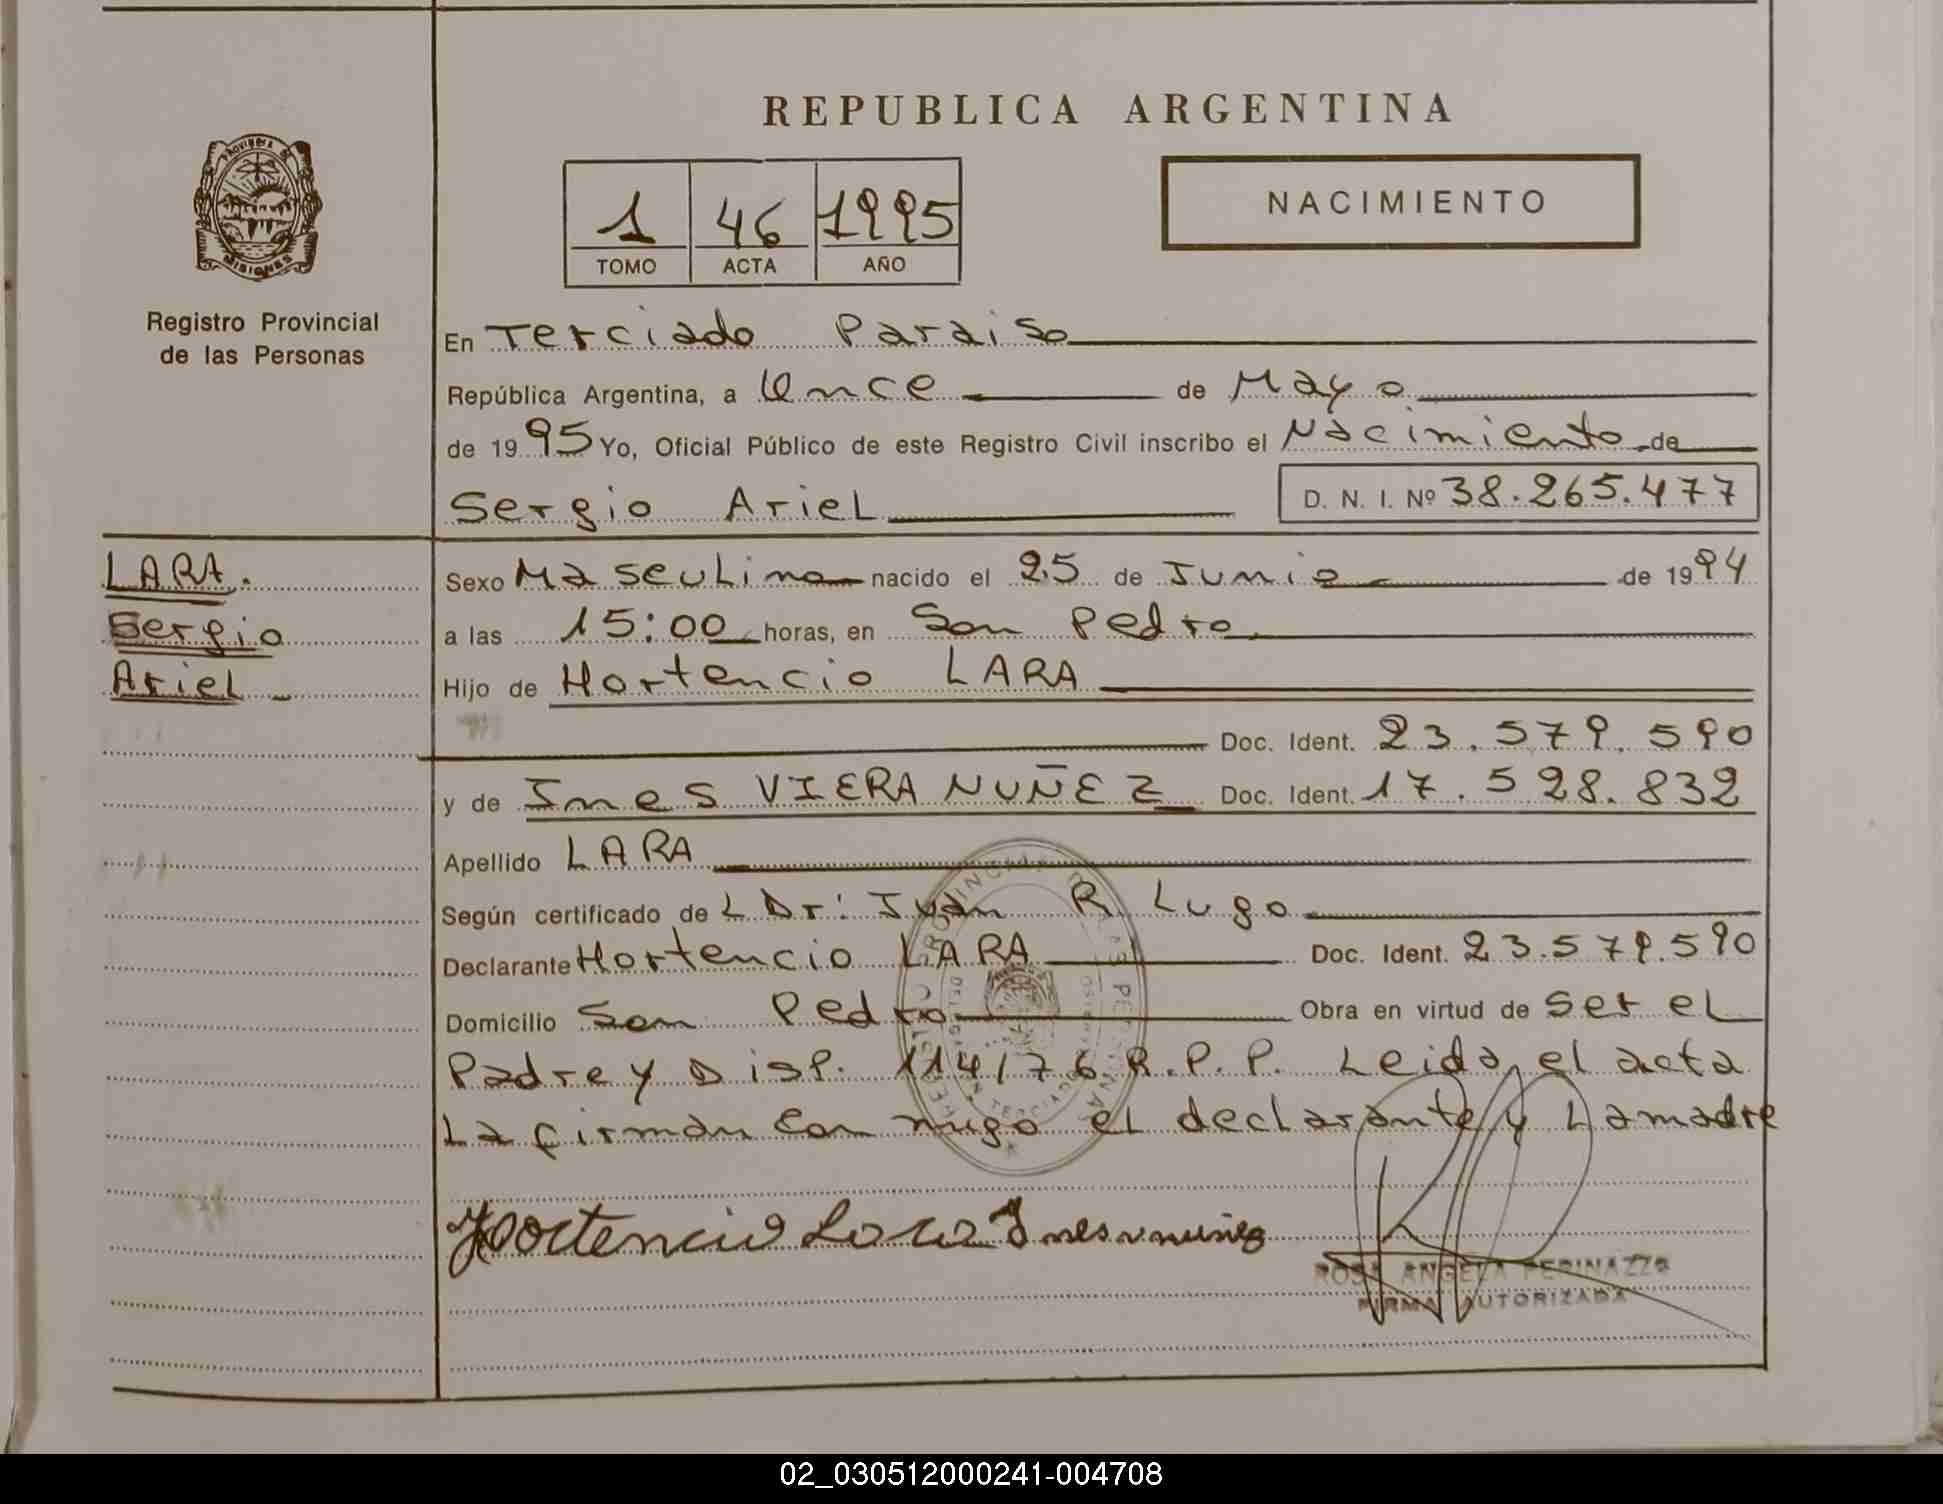 REPUBLICA ARGENTINA
PROVINCIA DE
MISIONES
Registro Provincial
de las Personas
1 46 1995
TOMO ACTA AÑO
NACIMIENTO
En Terciado Paraiso
República Argentina, a Once de Mayo
de 1995 Yo, Oficial Público de este Registro Civil inscribo el Nacimiento de
Sergio Ariel D. N. I. Nº 38.265.477
LARA.
Sergio
Ariel
Sexo Masculino nacido el 25 de Junio de 1994
a las 15:00 horas, en San Pedro
Hijo de Hortencio LARA
Doc. Ident. 23.579.590
y de Ines VIERA NUÑEZ Doc. Ident. 17.528.832
Apellido LARA
Según certificado de L Dr: Juan R. Lugo
Declarante Hortencio LARA Doc. Ident. 23.579.590
Domicilio San Pedro Obra en virtud de ser el
Padre y Disp. 114/76 R.P.P. Leida el acta
La firman con migo el declarante y La madre
Hortencio Lara Ines v nuñez
ROSA ANGELA PERINAZZO
FIRMA AUTORIZADA
02_030512000241-004708